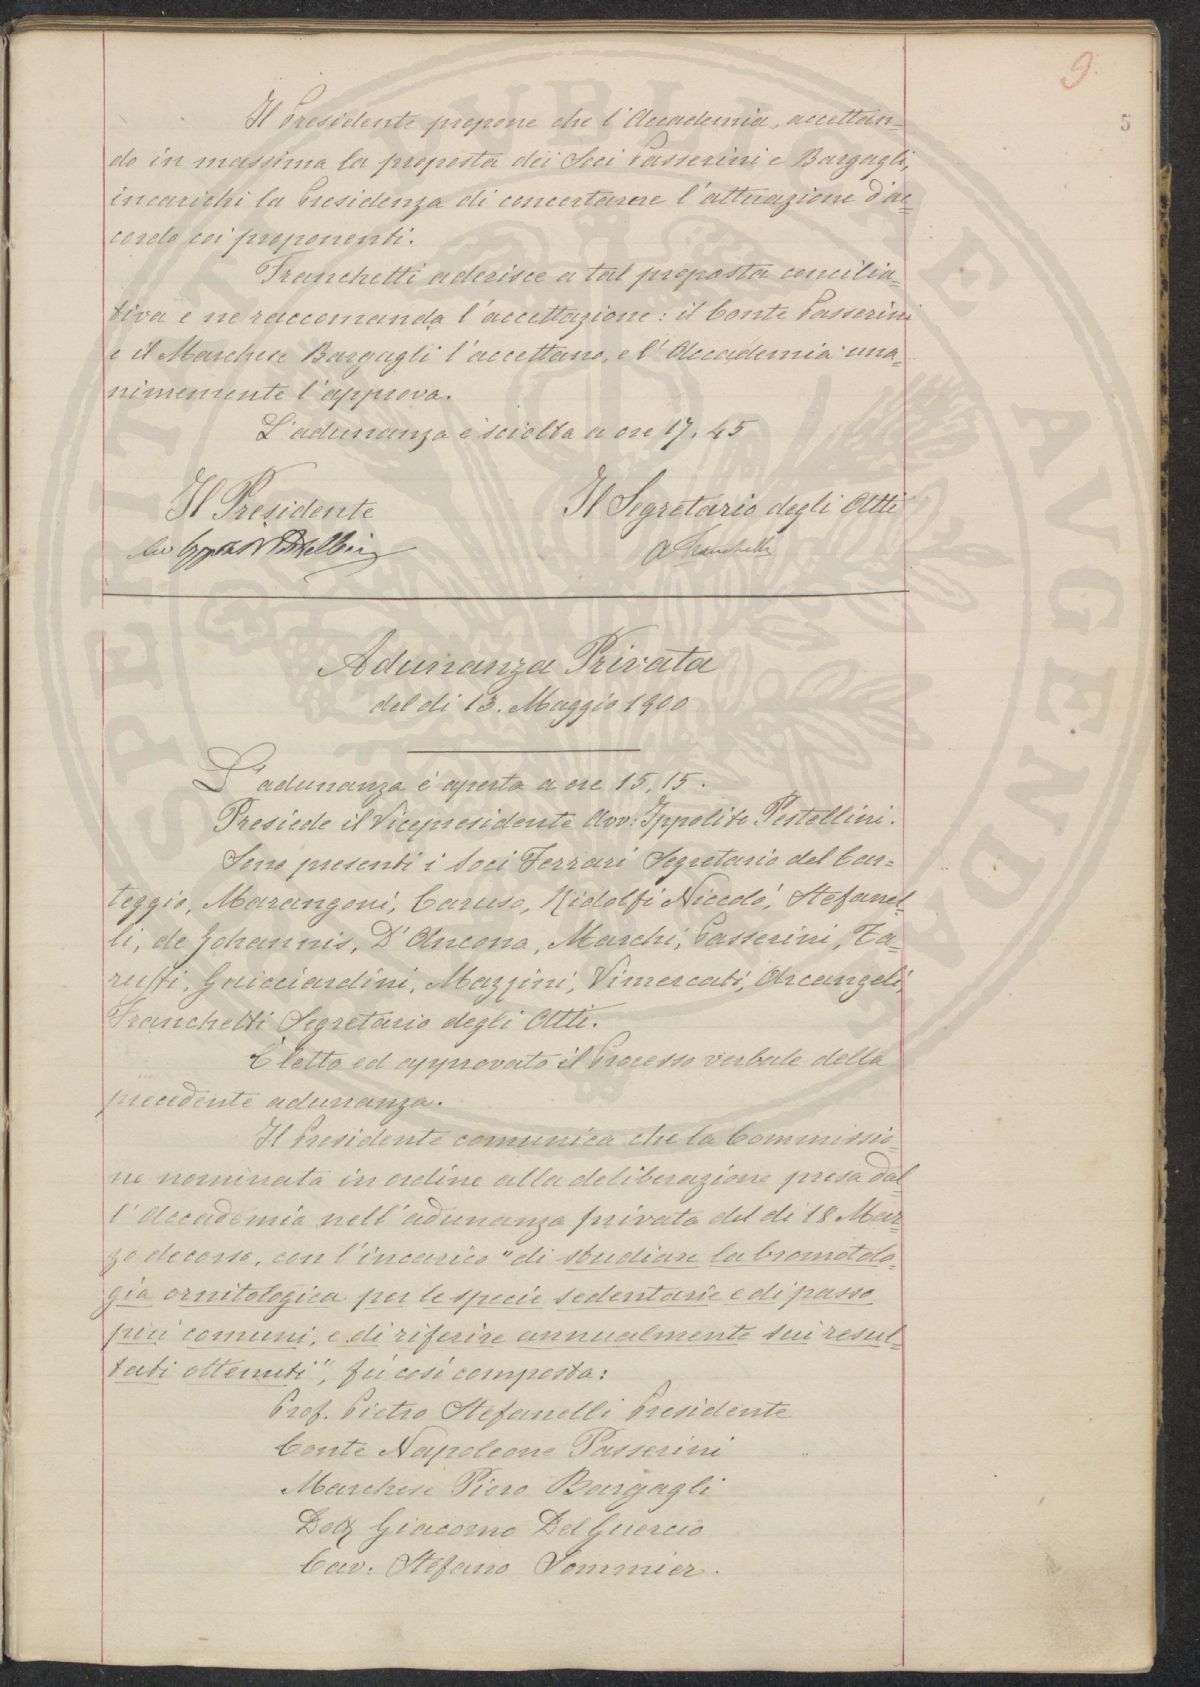 9
5
Il Presidente propone che l'Accademia, accettan=
do in massima la proposta dei Soci Passerini e Bargagli,
incarichi la Presidenza di concertarne l'attuazione d'ac=
cordo coi proponenti.
Franchetti aderisce a tal proposta concilia=
tiva e ne raccomanda l'accettazione: il Conte Passerini
e il Marchese Bargagli l'accettano, e l'Accademia una=
nimemente l'approva.
L'adunanza è sciolta a ore 17.45
Il Presidente
Il Segretario degli Atti
A Franchetti
Adunanza Privata
del dì 13. Maggio 1900
L'adunanza è aperta a ore 15,15.
Presiede il Vicepresidente Avv: Ippolito Pestellini.
Sono presenti i Soci Ferrari Segretario del Car=
teggio, Marangoni, Caruso, Ridolfi Niccolò, Stefanel=
li, de Johannis, D'Ancona, Marchi, Passerini, Ta=
ruffi, Guicciardini, Mazzini, Vimercati, Arcangeli,
Franchetti Segretario degli Atti.
È letto ed approvato il Processo verbale della
precedente adunanza.
Il Presidente comunica che la Commissio=
ne nominata in ordine alla deliberazione presa dal=
l'Accademia nell'adunanza privata del dì 18 Mar=
zo decorso, con l'incarico "di studiare la bromatolo=
gia ornitologica per le specie sedentarie e di passo
più comuni, e di riferire annualmente sui resul=
tati ottenuti", fù così composta:
Prof. Pietro Stefanelli Presidente
Conte Napoleone Passerini
Marchese Piero Bargagli
Dott Giacomo Del Guercio
Cav. Stefano Sommier.
PROSPERITATI PUBLICAE AUGENDAE